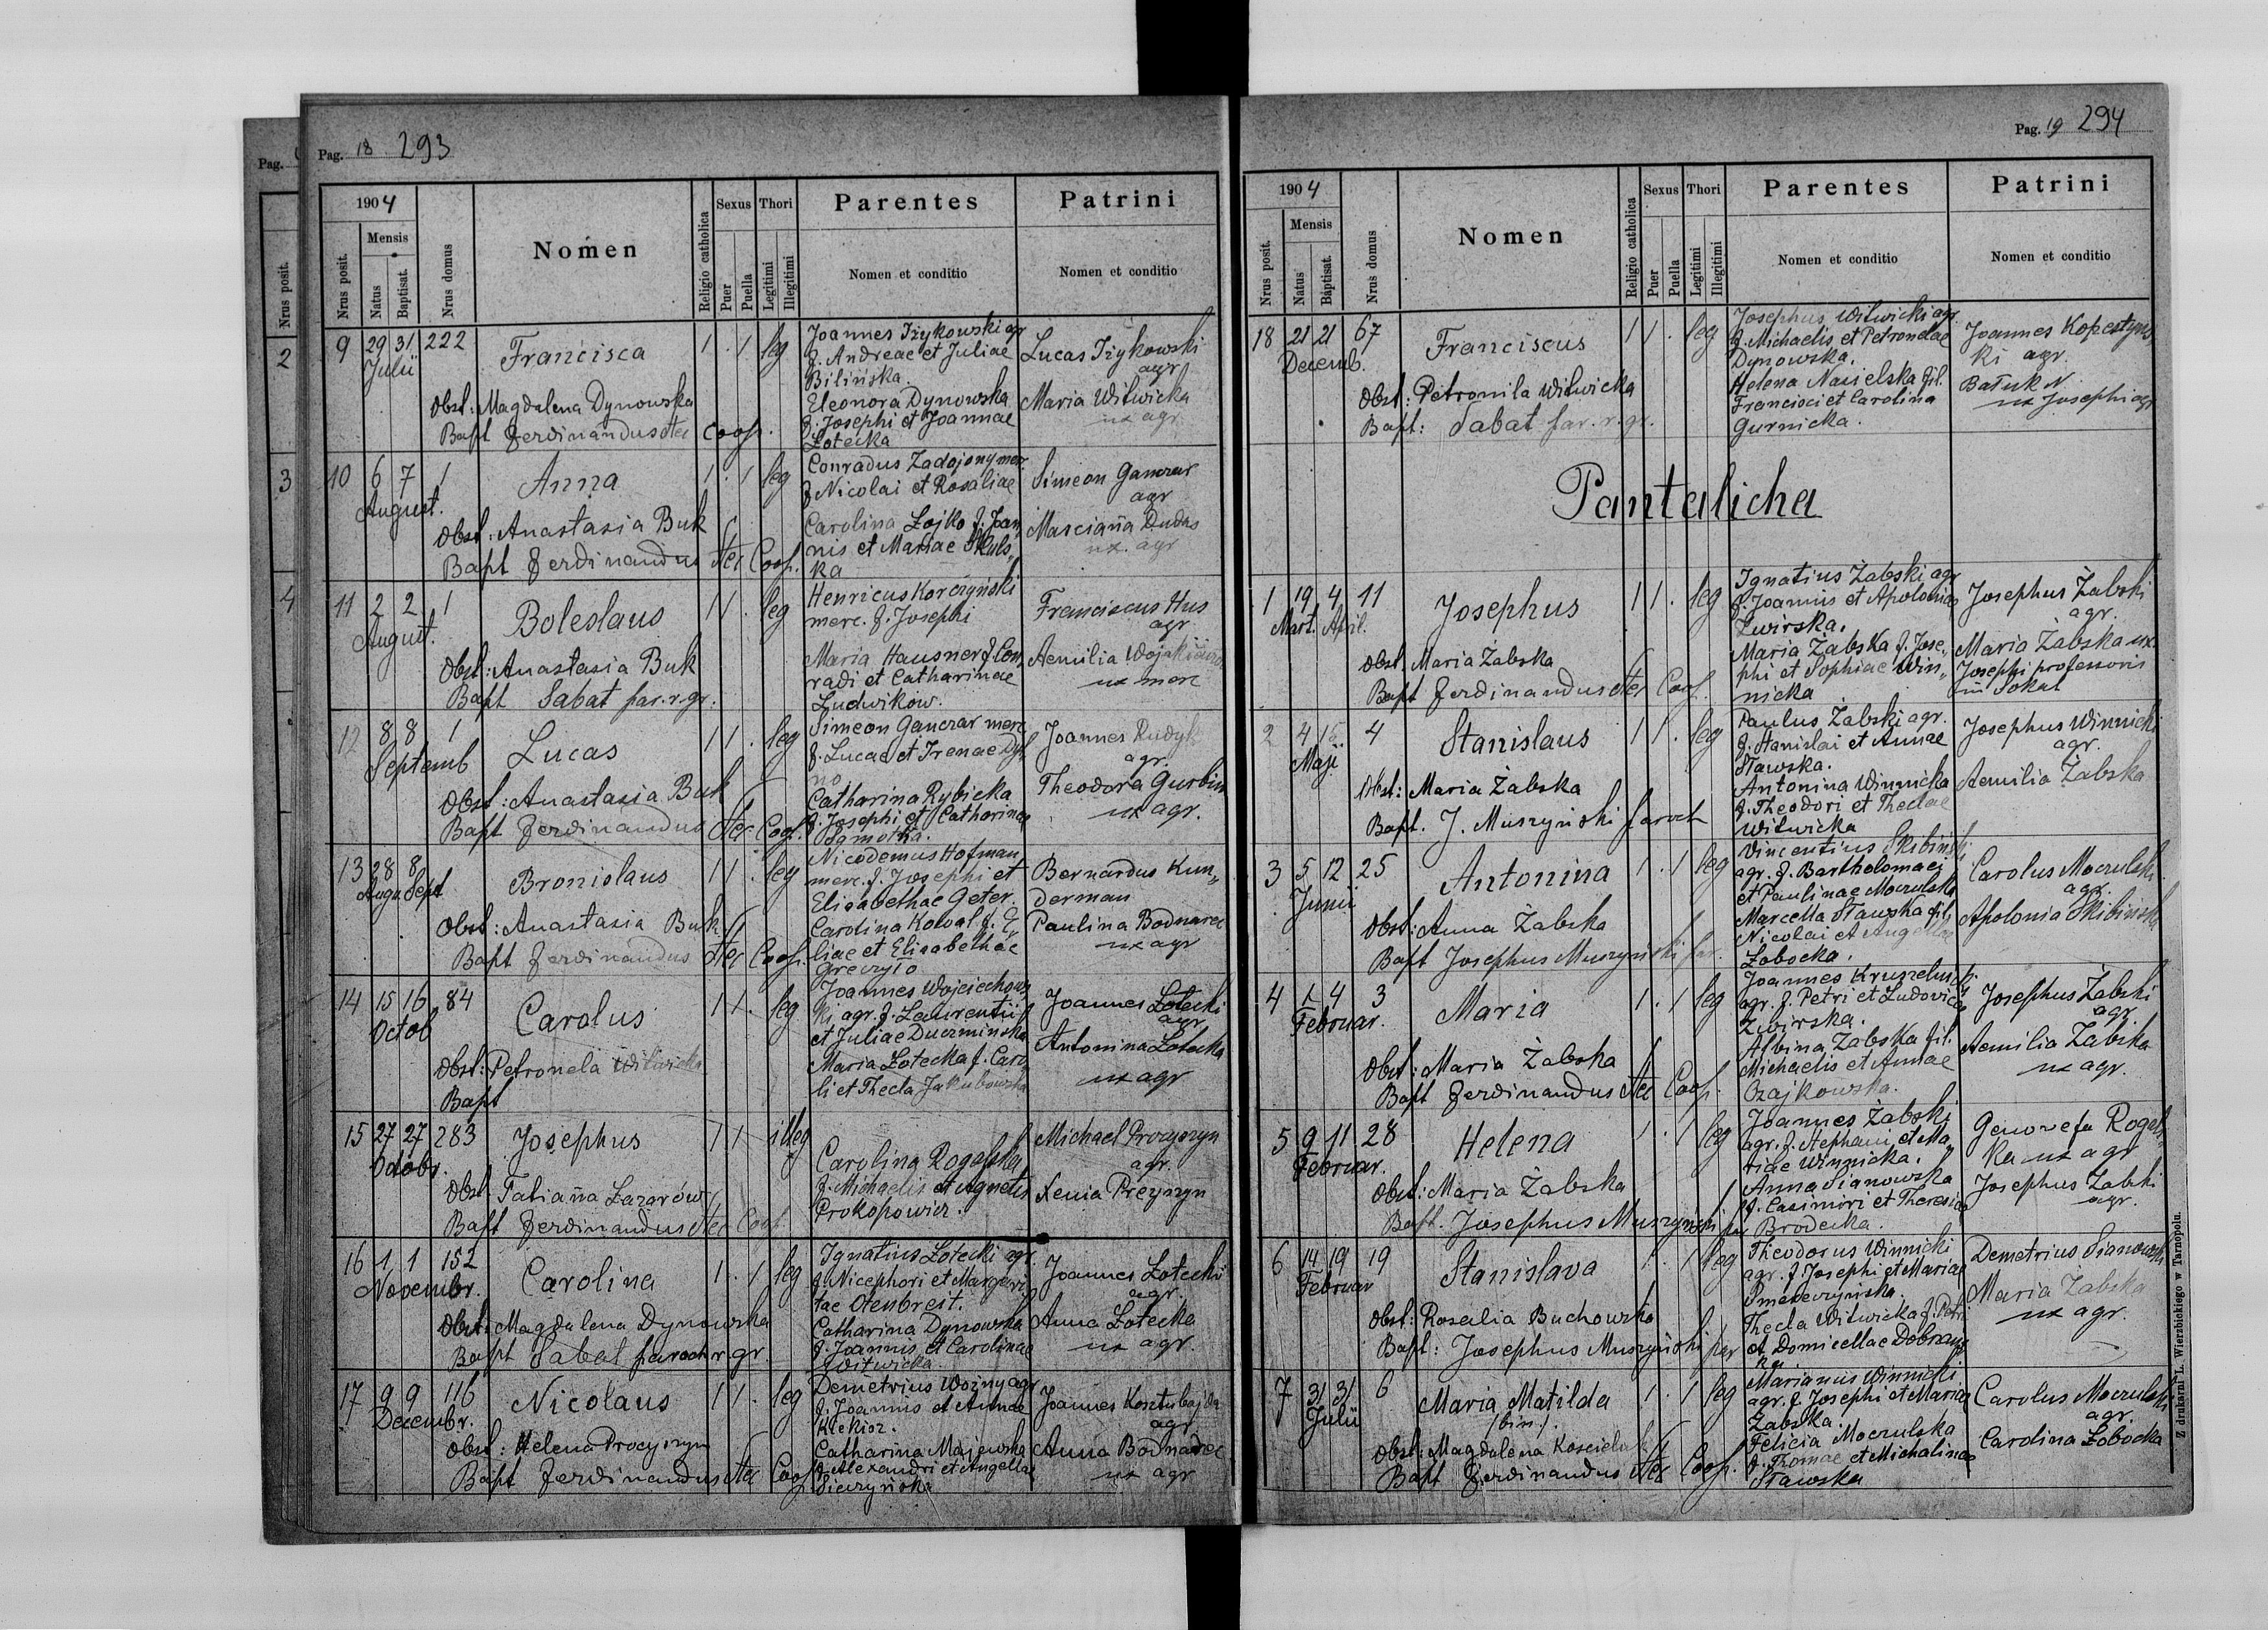 Pag. 18 293
1904
Nrus posit.
Mensis
Natus
Baptisat.
Nrus domus
Nomen
Religio catholica
Sexus
Puer
Puella
Thori
Legitimi
Illegitimi
Parentes
Nomen et conditio
Patrini
Nomen et conditio
9 29 31 222 Francisca 1 . 1 leg
Julii
Joannes Iżykowski agr
f. Andreae et Juliae
Bilińska.
Eleonora Dynowska
f. Josephi et Joannae
Łotecka
Lucas Iżykowski
agr
Maria Witwicka
ux agr.
Obst: Magdalena Dynowska
Bapt Ferdinandus Coop.
10 6 7 1 Anna 1 . 1 leg
August.
Conradus Zadojony merc.
f. Nicolai et Rosaliae
Carolina Łojko f. Joan
nis et Mariae
ka
Simeon Ganczar
agr
Dudas
ux. agr
Obst: Anastasia Buk
Bapt Ferdinandus Coop.
11 2 2 1 Boleslaus 1 1 . leg
August.
Henricus Korczyński
merc. f. Josephi
Maria Hausner f. Con,
radi et Catharinae
Ludwików.
Franciscus Hus
agr
Aemilia
ux merc
Obst: Anastasia Buk
Bapt Sabat par. r. gr.
12 8 8 1 Lucas 1 1 . leg
Septemb
Simeon Ganczar merc
f. Lucae et Irenae
no
Catharina Rybicka
f. Josephi et Catharinae
Joannes Rudyk
agr.
Theodora
ux agr.
Obst: Anastasia Buk
Bapt Ferdinandus Coop.
13 28 8 Bronislaus 1 1 . leg
Aug. Sept
Nicodemus Hofman
merc. f. Josephi et
Elisabethae Geter.
Carolina Kowal f. E
liae et Elisabethae
Bernardus Kun,,
derman
Paulina Bodnarec
ux agr
Obst: Anastasia Buk
Bapt Ferdinandus Coop.
14 15 16 84 Carolus 1 1 . leg
Octob
Joannes Wojciechows
ki agr. f. Laurentii
et Juliae
Maria Łotecka f. Caro
li et Thecla Jakubowska
Joannes Łotecki
agr
Antonina Łotecka
ux agr
Obst: Petronela Witwicka
Bapt
15 27 27 283 Josephus 1 1 illeg
Octobr.
Carolina Rogalska
f. Michaelis et Agnetis
Prokopowicz.
Michael Procyszyn
agr.
Xenia
Obst Tatiana Lazarów
Bapt Ferdinandus Coop.
16 1 1 152 Carolina 1 . 1 leg
Novembr.
Ignatius Łotecki agr.
f. Nicephori et Margeri
tae Otenbreit.
Catharina Dynowska
f. Joannis et Carolinae
Witwicka.
Joannes Łotecki
agr.
Anna Łotecka
ux agr.
Obst: Magdalena Dynowska
Bapt Sabat paroch r. gr.
17 9 9 116 Nicolaus 1 1 . leg
Decembr.
Demetrius Woźny agr
f. Joannis et Annae
Catharina Majewska
f. Alexandri et Angellae
Joannes
agr
Anna Bodnarec
ux agr
Obst: Helena Procyszyn
Bapt Ferdinandus Coop.
Pag. 19 294
1904
Nrus posit.
Mensis
Natus
Baptisat.
Nrus domus
Nomen
Religio catholica
Sexus
Puer
Puella
Thori
Legitimi
Illegitimi
Parentes
Nomen et conditio
Patrini
Nomen et conditio
18 21 21 67 Franciscus 1 1 . leg
Decemb.
Josephus Witwicki agr.
f. Michaelis et Petronelae
Dynowska.
Helena Nasielska fil.
Francisci et Carolina
Gurnicka.
Joannes Kopestyns,
ki agr.
ux Josephi agr
Obst: Petronila Witwicka
Bapt: Sabat par. r. gr.
Pantalicha
1 19 4 11 Josephus 1 1 . leg
Mart. April.
Ignatius Żabski agr
f. Joannis et Apolonia
Zwirska.
Maria Żabska f. Jose,,
phi et Sophiae Win,,
nicka
Josephus Żabski
agr.
Maria Żabska ux.
Josephi professoris
in Sokal
Obst Maria Żabska
Bapt Ferdinandus Coop.
2 4 15 4 Stanislaus 1 1 . leg
Maji
Paulus Żabski agr.
f. Stanislai et Annae
Stawska.
Antonina Winnicka
f. Theodori et Theclae
Witwicka
Josephus Winnicki
agr.
Aemilia Żabska
Obst: Maria Żabska
Bapt. J. Muszyński paroch
3 5 12 25 Antonina 1 . 1 leg
Junii
Vincentius Skibiński
agr. f. Bartholomaei
et Paulinae Moczulska
Marcella Stawska fil.
Nicolai et Angellae
Łobocka.
Carolus Moczulski
agr.
Apolonia Skibińska
Obst: Anna Żabska
Bapt Josephus Muszyński par.
4 1 4 3 Maria 1 . 1 leg
Februar.
Joannes Kruszelnicki
agr. f. Petri et Ludovicae
Zwirska.
Albina Żabska fil.
Michaelis et Annae
Czajkowska.
Josephus Żabski
agr.
Aemilia Żabska
ux agr.
Obst: Maria Żabska
Bapt Ferdinandus Coop.
5 9 11 28 Helena 1 . 1 leg
Februar.
Joannes Żabski
agr. f. Stephani et Ma
riae Winnicka.
Anna Sianowska
f. Casimiri et Theresiae
Brodecka.
Genovefa Rogals
ka ux agr
Josephus Żabski
agr.
Obst: Maria Żabska
Bapt. Josephus Muszyński par
6 14 19 19 Stanislava 1 . 1 leg
Februar
Theodorus Winnicki
agr. f. Josephi et Mariae
Thecla Witwicka f. Petri
et Domicellae
Demetrius Sianowski
Maria Żabska
ux agr.
Obst: Rosalia Buchowska
Bapt: Josephus Muszyński par
7 31 31 6 Maria Matilda 1 . 1 leg
Julii
(bin.)
Marianus Winnicki
agr. f. Josephi et Maria
Żabska.
Felicia Moczulska
f. Thomae et Michalinae
Stawska
Carolus Moczulski
agr.
Carolina Łobocka
Obst: Magdalena
Bapt Ferdinandus Coop.
Z drukarni L. Wierzbickiego w Tarnopolu.
Pag.
Nrus posit.
2
3
4